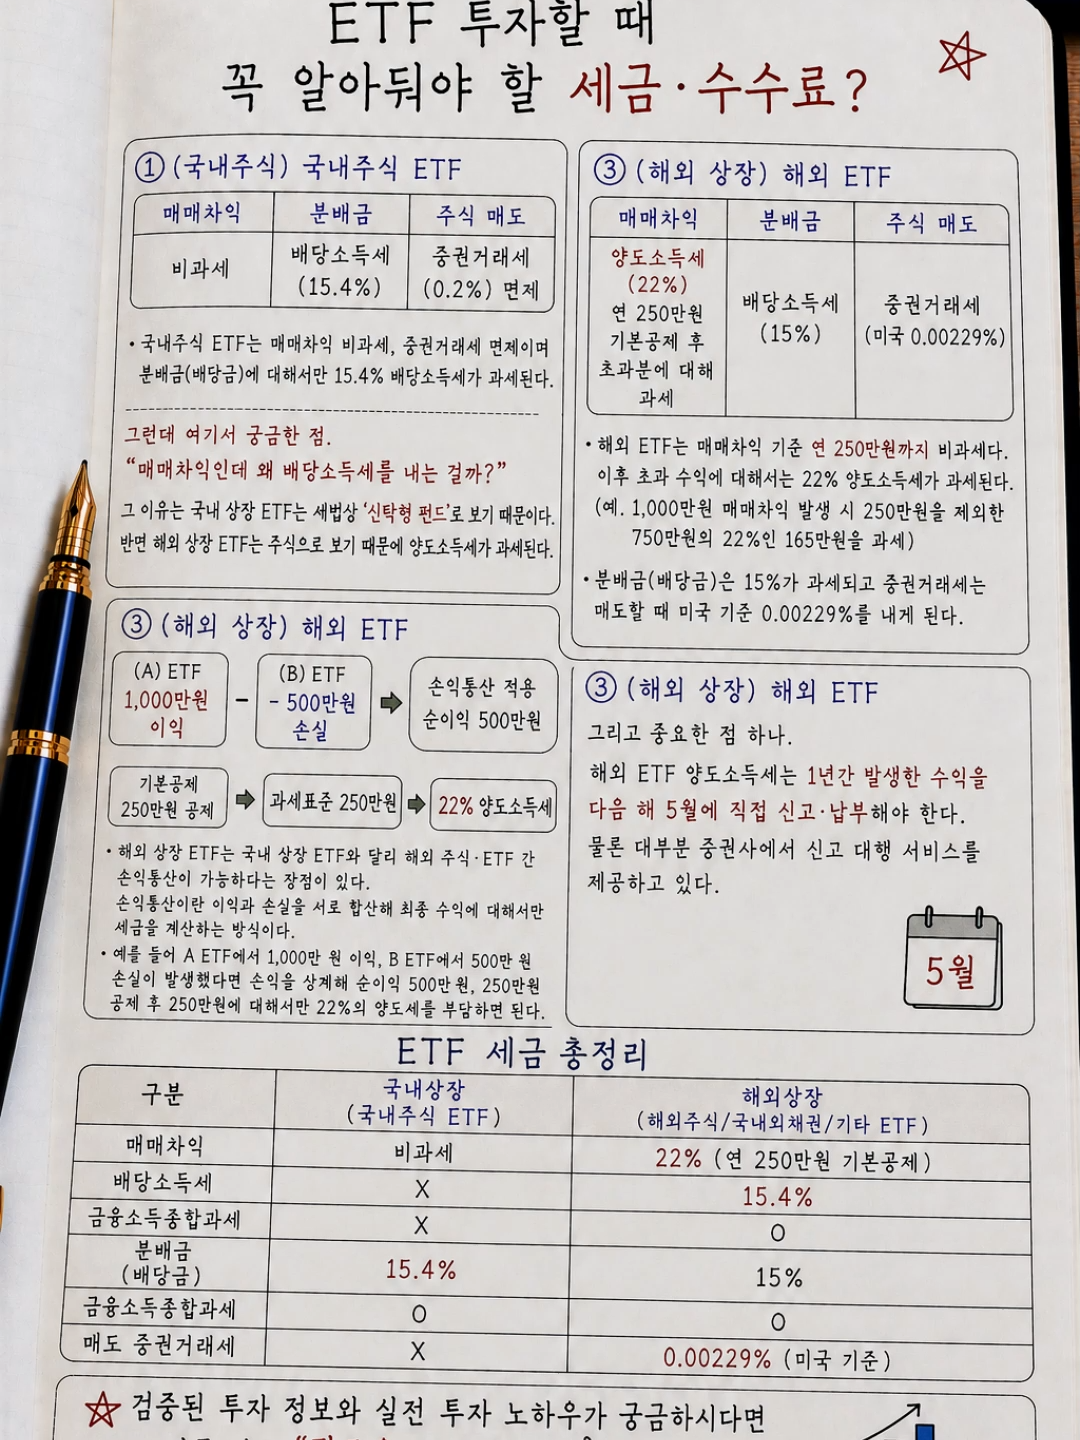 ETF 투자할 때
꼭 알아둬야 할 세금·수수료?
① (국내주식) 국내주식 ETF
매매차익 분배금 주식 매도
비과세 배당소득세 (15.4%) 중권거래세 (0.2%) 면제
• 국내주식 ETF는 매매차익 비과세, 중권거래세 면제이며
분배금(배당금)에 대해서만 15.4% 배당소득세가 과세된다.
그런대 여기서 궁금한 점.
“매매차익인데 왜 배당소득세를 내는 걸까?”
그 이유는 국내 상장 ETF는 세법상 ‘신탁형 펀드’로 보기 때문이다.
반면 해외 상장 ETF는 주식으로 보기 때문에 양도소득세가 과세된다.
③ (해외 상장) 해외 ETF
매매차익 분배금 주식 매도
양도소득세
(22%)
연 250만원
기본공제 후
초과분에 대해
과세
배당소득세
(15%)
중권거래세
(미국 0.00229%)
• 해외 ETF는 매매차익 기준 연 250만원까지 비과세다.
이후 초과 수익에 대해서는 22% 양도소득세가 과세된다.
(예. 1,000만원 매매차익 발생 시 250만원을 제외한
750만원의 22%인 165만원을 과세)
• 분배금(배당금)은 15%가 과세되고 중권거래세는
매도할 때 미국 기준 0.00229%를 내게 된다.
③ (해외 상장) 해외 ETF
(A) ETF
1,000만원
이익
−
(B) ETF
- 500만원
손실
손익통산 적용
순이익 500만원
기본공제
250만원 공제
과세표준 250만원
22% 양도소득세
• 해외 상장 ETF는 국내 상장 ETF와 달리 해외 주식·ETF 간
손익통산이 가능하다는 장점이 있다.
손익통산이란 이익과 손실을 서로 합산해 최종 수익에 대해서만
세금을 계산하는 방식이다.
• 예를 들어 A ETF에서 1,000만 원 이익, B ETF에서 500만 원
손실이 발생했다면 손익을 상계해 순이익 500만 원, 250만원
공제 후 250만원에 대해서만 22%의 양도세를 부담하면 된다.
③ (해외 상장) 해외 ETF
그리고 중요한 점 하나.
해외 ETF 양도소득세는 1년간 발생한 수익을
다음 해 5월에 직접 신고·납부해야 한다.
물론 대부분 중권사에서 신고 대행 서비스를
제공하고 있다.
5월
ETF 세금 총정리
구분 국내상장 (국내주식 ETF) 해외상장 (해외주식/국내외채권/기타 ETF)
매매차익 비과세 22% (연 250만원 기본공제)
배당소득세 X 15.4%
금융소득종합과세 X O
분배금 (배당금) 15.4% 15%
금융소득종합과세 O O
매도 중권거래세 X 0.00229% (미국 기준)
검중된 투자 정보와 실전 투자 노하우가 궁금하시다면